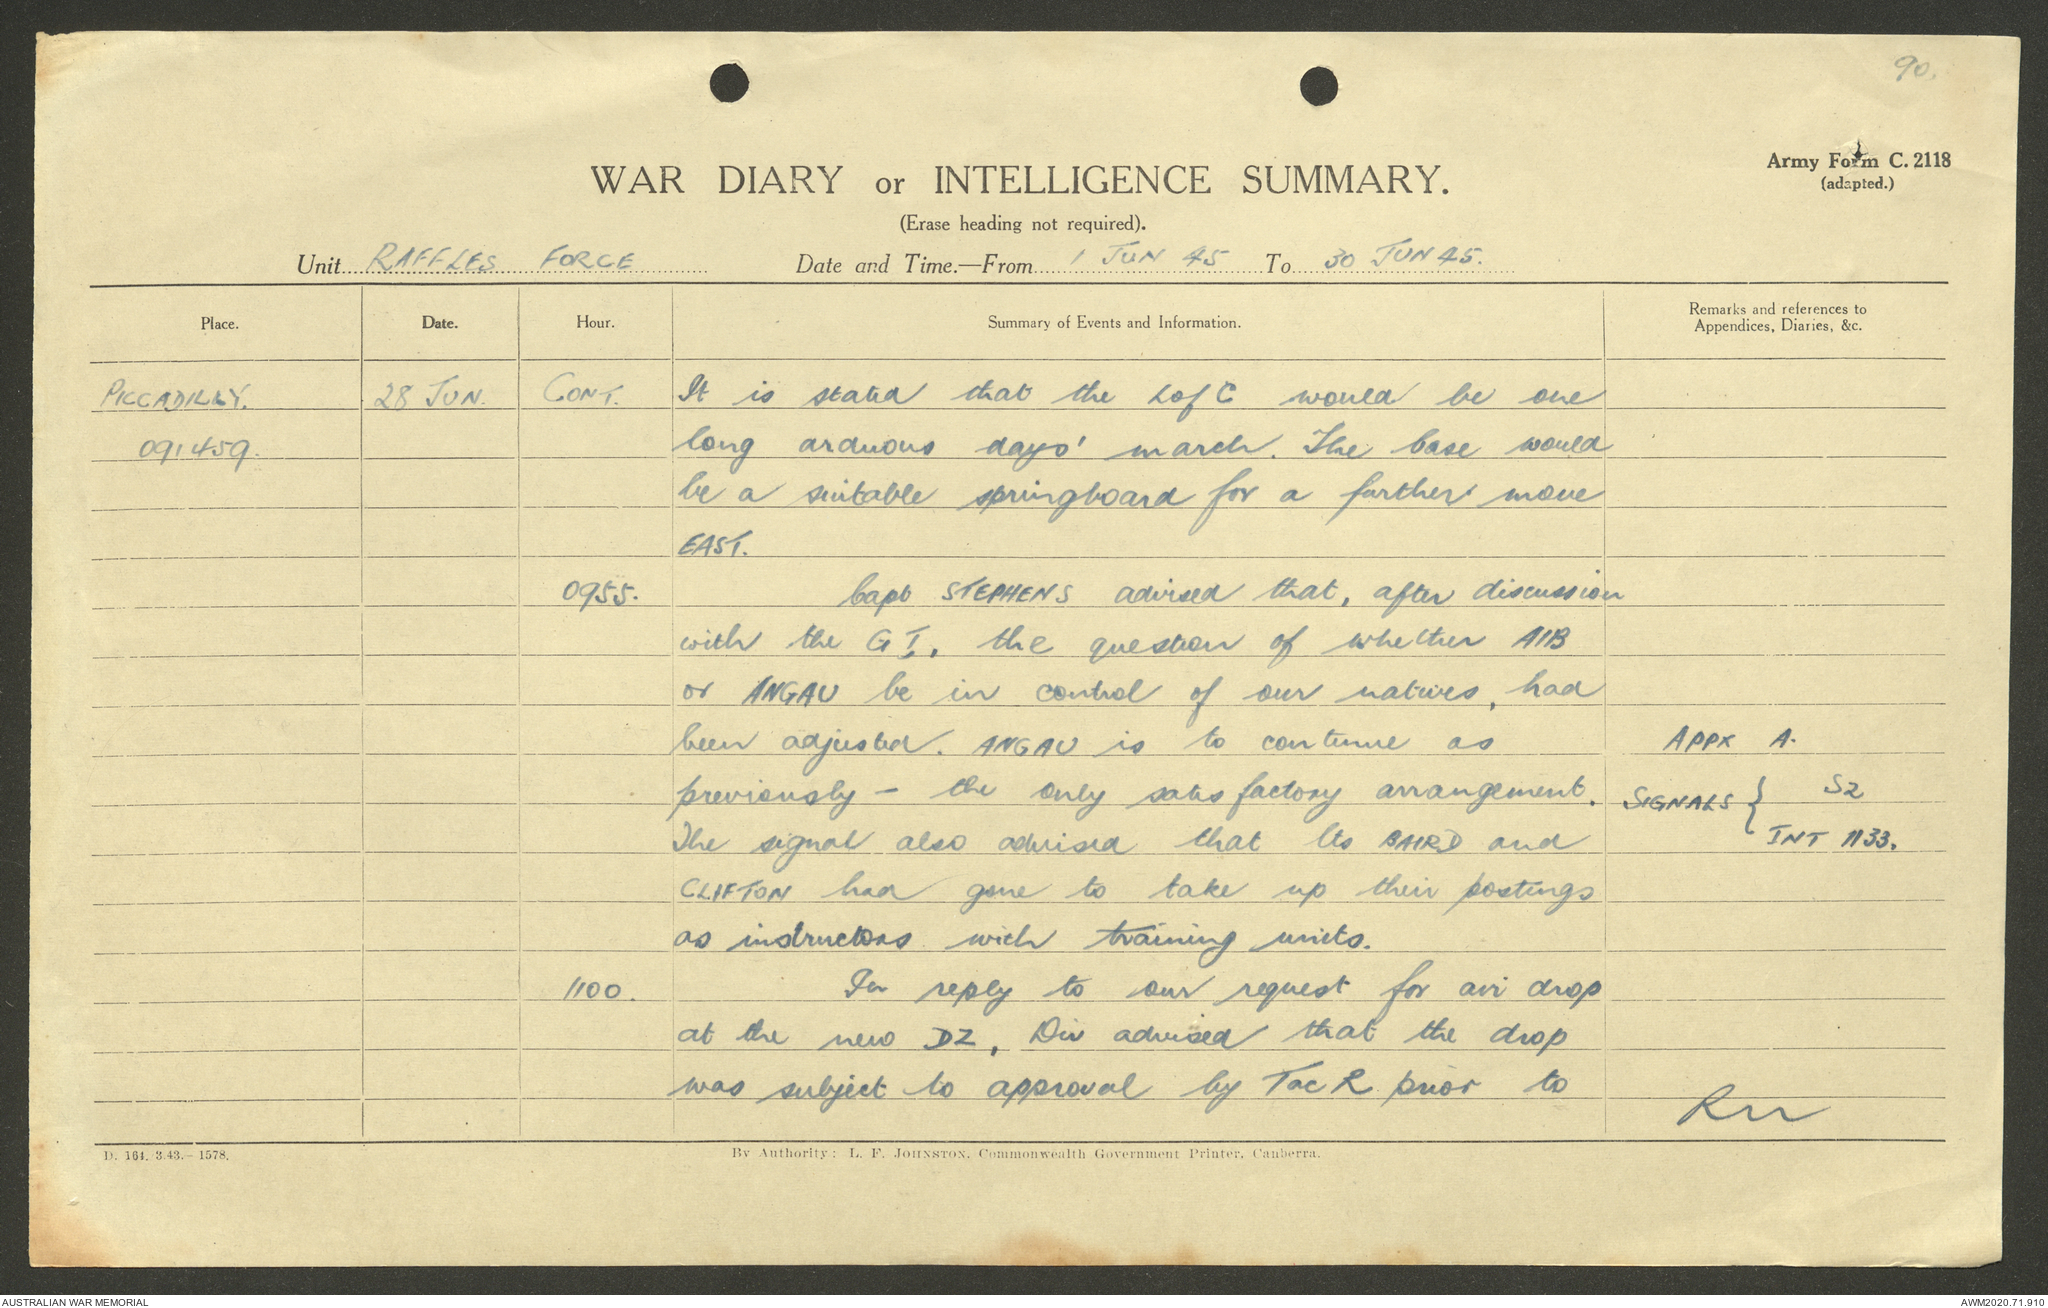 90.
Army Form C. 2118
(adapted.)
WAR DIARY or INTELLIGENCE SUMMARY.
(Erase heading not required).
Unit RAFFLES FORCE Date and Time.—From 1 JUN 45 To 30 JUN 45.
Place. Date. Hour. Summary of Events and Information. Remarks and references to
Appendices, Diaries, &c.
PICCADILLY. 28 JUN. CONT. It is stated that the L of C would be one
091459. long arduous days' march. The base would
be a suitable springboard for a further move
EAST.
0955. Capt STEPHENS advised that, after discussion
with the G I, the question of whether AIB
or ANGAU be in control of our natives, had
been adjusted. ANGAU is to continue as APPX A.
previously - the only satisfactory arrangement. SIGNALS { S2
The signal also advised that Lts BAIRD and INT 1133.
CLIFTON had gone to take up their postings
as instructors with training units.
1100. In reply to our request for air drop
at the new DZ, Div advised that the drop
was subject to approval by Tac R prior to
D. 164. 3.43.—1578. By Authority: L. F. JOHNSTON, Commonwealth Government Printer, Canberra.
AUSTRALIAN WAR MEMORIAL AWM2020.71.910